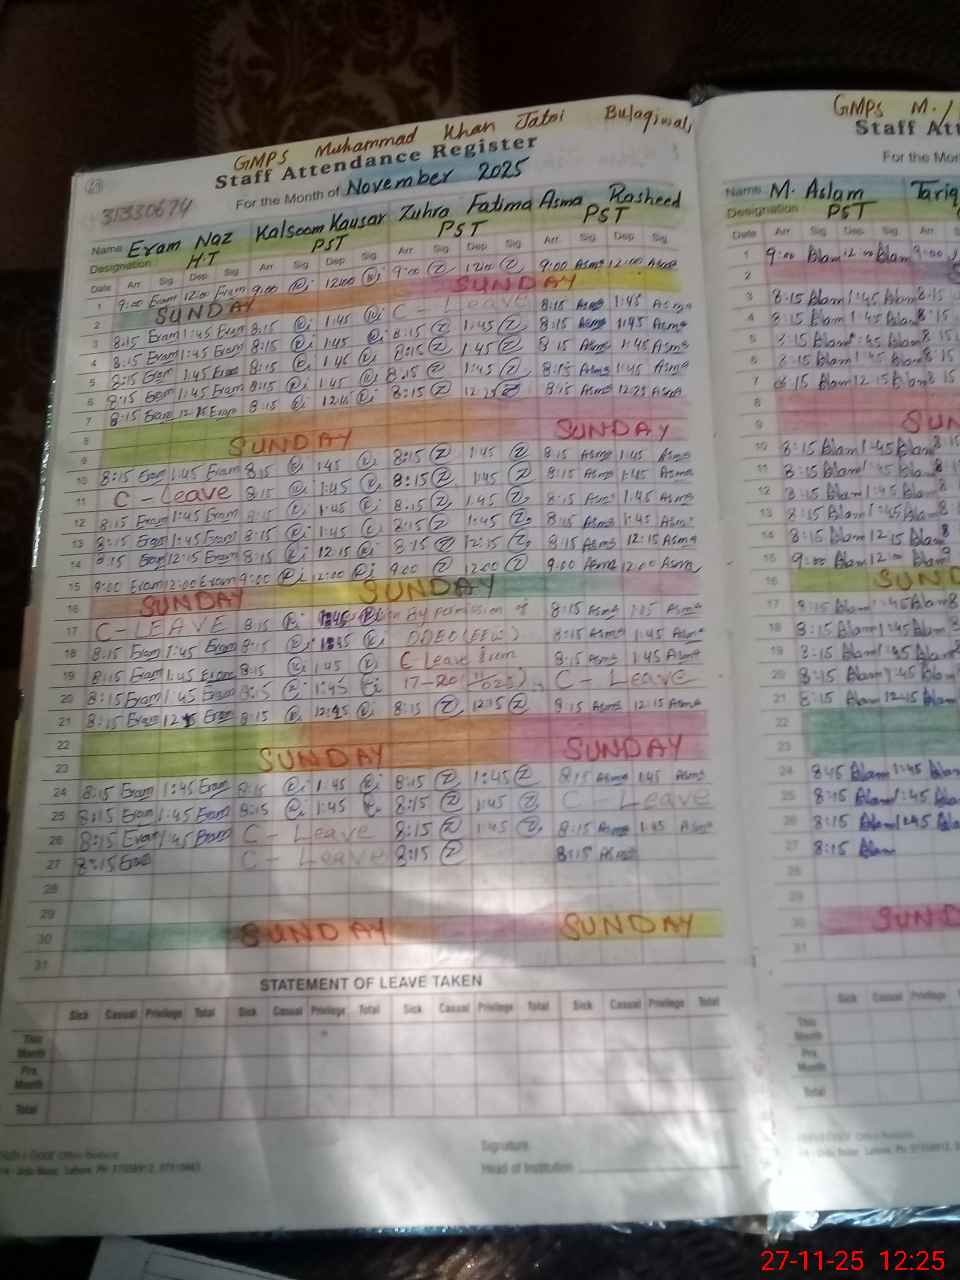 GMPS Muhammad Khan Jatoi Bulaqiwali
Staff Attendance Register
31330674
For the Month of November 2025
Name Eram Naz Kalsoom Kausar Zuhra Fatima Asma Rasheed
Designation H.T PST PST PST
Date Arr Sig Dep Sig Arr Sig Dep Sig Arr Sig Dep Sig Arr Sig Dep Sig
1 9:00 Eram 12:00 Eram 9:00 12:00 9:00 Z 12:00 Z 9:00 Asma 12:00 Asma
2 SUNDAY SUNDAY
3 8:15 Eram 1:45 Eram 8:15 1:45 C - Leave 8:15 Asma 1:45 Asma
4 8:15 Eram 1:45 Eram 8:15 1:45 8:15 Z 1:45 Z 8:15 Asma 1:45 Asma
5 8:15 Eram 1:45 Eram 8:15 1:45 8:15 Z 1:45 Z 8:15 Asma 1:45 Asma
6 8:15 Eram 1:45 Eram 8:15 1:45 8:15 Z 1:45 Z 8:15 Asma 1:45 Asma
7 8:15 Eram 12:15 Eram 8:15 8:15 Z 12:25 8:15 Asma 12:25 Asma
8
9 SUNDAY SUNDAY
10 8:15 Eram 1:45 Eram 8:15 1:45 8:15 Z 1:45 Z 8:15 Asma 1:45 Asma
11 C - Leave 8:15 1:45 8:15 Z 1:45 Z 8:15 Asma 1:45 Asma
12 8:15 Eram 1:45 Eram 8:15 1:45 8:15 Z 1:45 Z 8:15 Asma 1:45 Asma
13 8:15 Eram 1:45 Eram 8:15 1:45 8:15 Z 1:45 Z 8:15 Asma 1:45 Asma
14 8:15 Eram 12:15 Eram 8:15 12:15 8:15 Z 12:15 Z 8:15 Asma 12:15 Asma
15 9:00 Eram 12:00 Eram 9:00 12:00 9:00 Z 12:00 Z 9:00 Asma 12:00 Asma
16 SUNDAY SUNDAY
17 C-LEAVE 8:15 1:45 By permission of 8:15 Asma Asma
18 8:15 Eram 1:45 Eram 8:15 1:45 DDEO 8:15 Asma 1:45 Asma
19 8:15 Eram 1:45 Eram 8:15 1:45 C Leave from 8:15 Asma 1:45 Asma
20 8:15 Eram 1:45 Eram 8:15 1:45 17-20 C - Leave
21 8:15 Eram 12:15 Eram 8:15 12:15 8:15 Z 12:15 Z 8:15 Asma 12:15 Asma
22
23 SUNDAY SUNDAY
24 8:15 Eram 1:45 Eram 8:15 1:45 8:15 Z 1:45 Z 8:15 Asma 1:45 Asma
25 8:15 Eram 1:45 Eram 8:15 1:45 8:15 Z 1:45 Z C Leave
26 8:15 Eram 1:45 Eram C - Leave 8:15 Z 1:45 Z 8:15 Asma 1:45 Asma
27 8:15 Eram C - Leave 8:15 Z 8:15 Asma
28
29
30 SUNDAY SUNDAY
31
STATEMENT OF LEAVE TAKEN
Sick Casual Privilege Total Sick Casual Privilege Total Sick Casual Privilege Total Sick Casual Privilege Total
This Month
Prv. Month
Total
Signature
Head of Institution
GMPS M.
Staff Att
For the Mon
Name M. Aslam Tariq
Designation PST
Date Arr Sig Dep Sig Arr
1 9:00 Aslam 12:00 Aslam 9:00
2
3 8:15 Aslam 1:45 Aslam 8:15
4 8:15 Aslam 1:45 Aslam 8:15
5 8:15 Aslam 1:45 Aslam 8:15
6 8:15 Aslam 1:45 Aslam 8:15
7 8:15 Aslam 12:15 Aslam 8:15
8
9 SUN
10 8:15 Aslam 1:45 Aslam 8:15
11 8:15 Aslam 1:45 Aslam 8
12 8:15 Aslam 1:45 Aslam 8
13 8:15 Aslam 1:45 Aslam 8
14 8:15 Aslam 12:15 Aslam 8
15 9:00 Aslam 12:00 Aslam 9
16 SUND
17 8:15 Aslam 1:45 Aslam 8
18 8:15 Aslam 1:45 Aslam
19 8:15 Aslam 1:45 Aslam
20 8:15 Aslam 1:45 Aslam
21 8:15 Aslam 12:15 Aslam
22
23
24 8:45 Aslam 1:45 Aslam
25 8:15 Aslam 1:45 Aslam
26 8:15 Aslam 1:45 Aslam
27 8:15 Aslam
28
29
30 SUND
31
Sick Casual Privilege
This Month
Prv. Month
Total
27-11-25 12:25